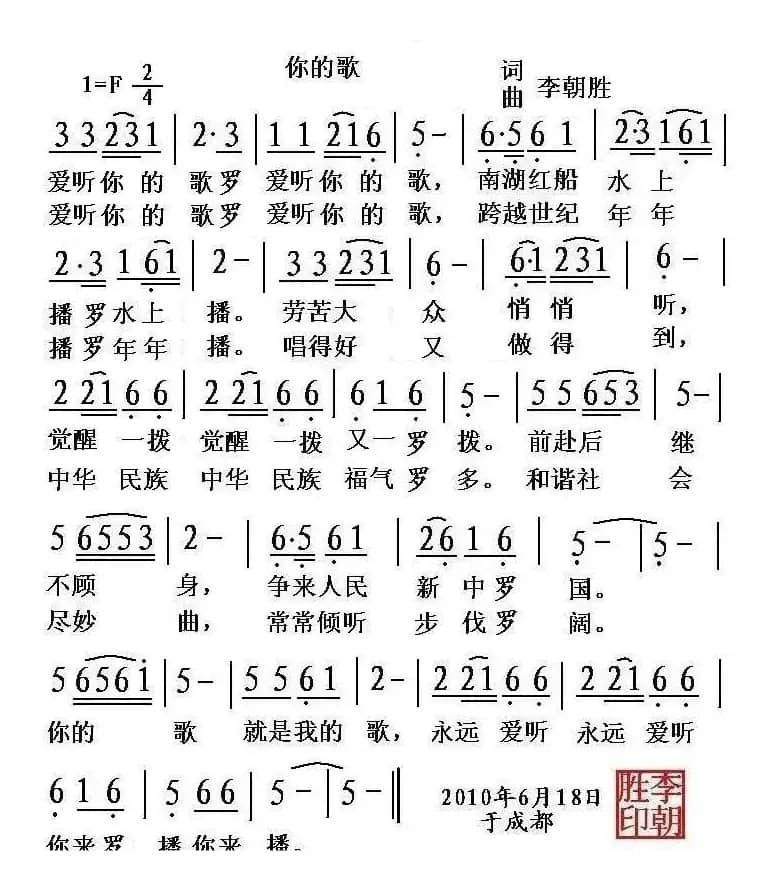 你的歌
1=F 2/4
词
曲 李朝胜
3 3 2 3 1 | 2· 3 | 1 1 2 1 6 | 5 - | 6·5 6 1 | 2·3 1 6 1 |
爱听你 的 歌罗 爱听你 的 歌, 南湖红船 水 上
爱听你 的 歌罗 爱听你 的 歌, 跨越世纪 年 年
2·3 1 6 1 | 2 - | 3 3 2 3 1 | 6 - | 6·1 2 3 1 | 6 - |
播 罗水上 播。 劳苦大 众 悄 悄 听,
播 罗年年 播。 唱得好 又 做 得 到,
2 2 1 6 6 | 2 2 1 6 6 | 6 1 6 | 5 - | 5 5 6 5 3 | 5 - |
觉醒 一拨 觉醒 一拨 又一 罗 拨。 前赴后 继
中华 民族 中华 民族 福气 罗 多。 和谐社 会
5 6 5 5 3 | 2 - | 6·5 6 1 | 2 6 1 6 | 5 - | 5 - |
不顾 身, 争来人民 新 中 罗 国。
尽妙 曲, 常常倾听 步 伐 罗 阔。
5 6 5 6 1 | 5 - | 5 5 6 1 | 2 - | 2 2 1 6 6 | 2 2 1 6 6 |
你的 歌 就是我的 歌, 永远 爱听 永远 爱听
6 1 6 | 5 6 6 | 5 - | 5 - ‖
你来罗 播你来 播。
2010年6月18日
于成都
李朝胜印